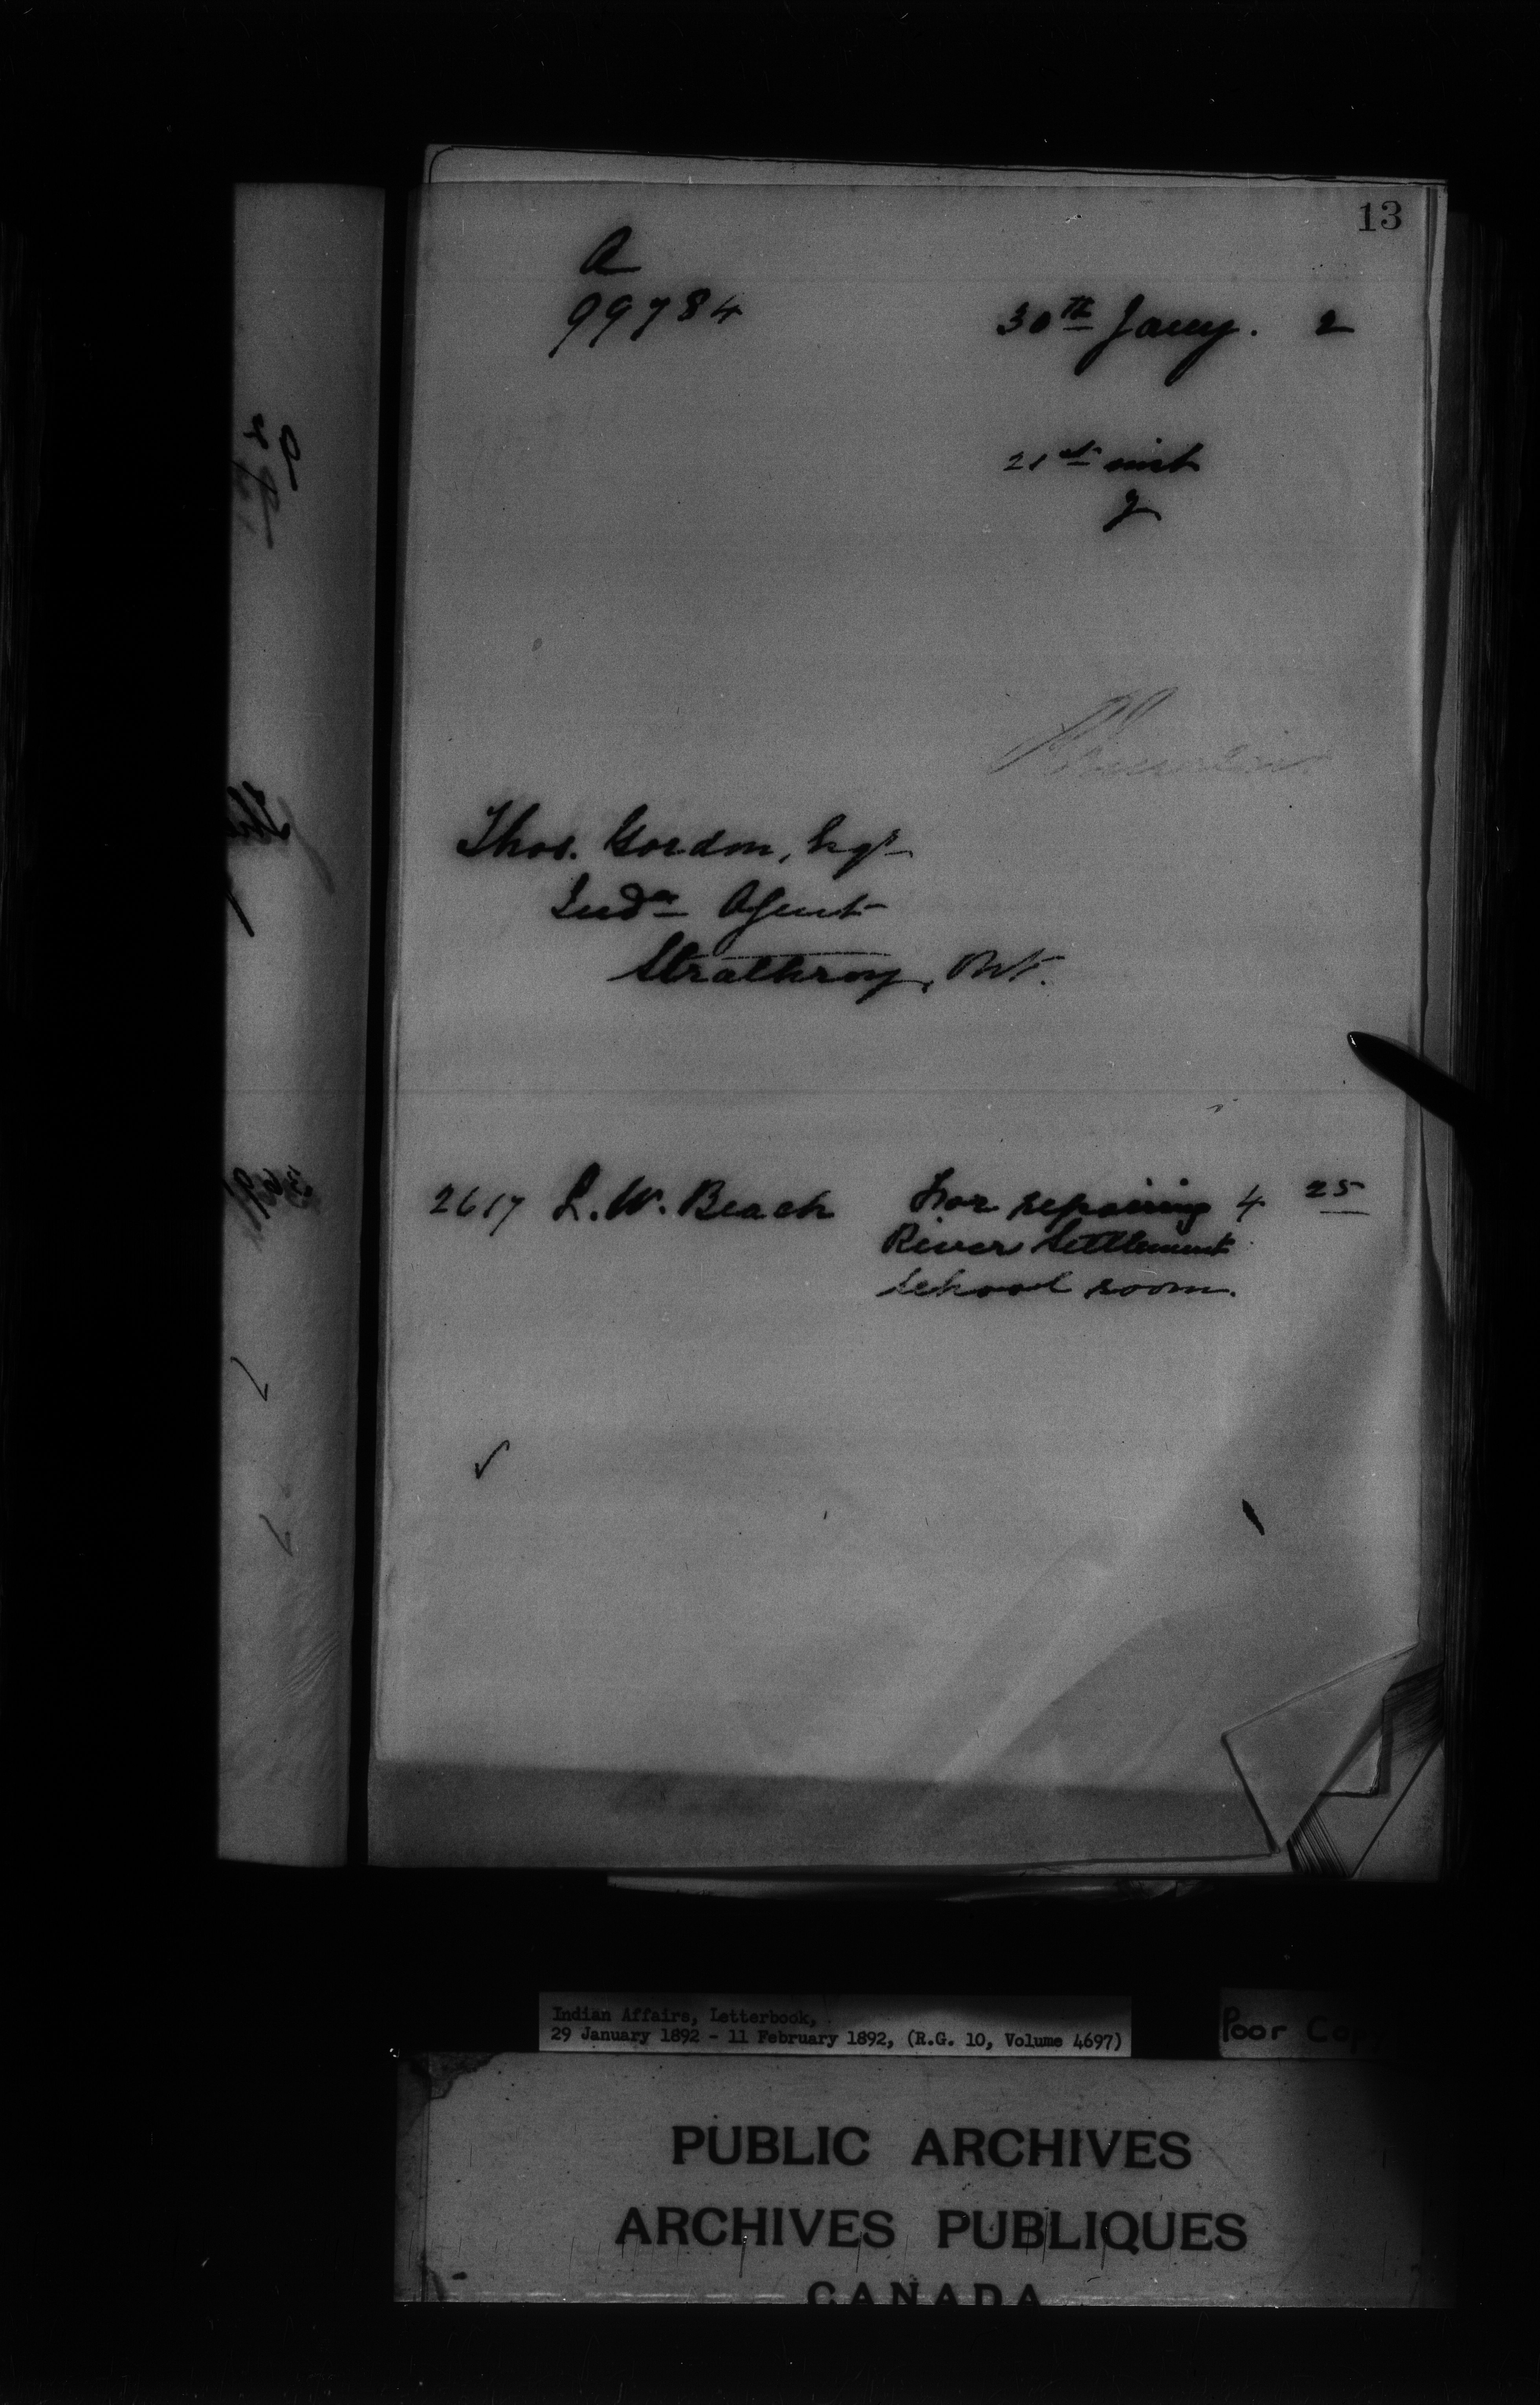 13
A
99784
30th Jany. 2
21st inst
Thos. Gordon, Esqr
Indn Agent
Strathroy, Ont.
2617 L. W. Beach For repairing 4 25
River Settlement
School room.
Indian Affairs, Letterbook,
29 January 1892 - 11 February 1892, (R.G. 10, Volume 4697)
Poor Copy
PUBLIC ARCHIVES
ARCHIVES PUBLIQUES
CANADA